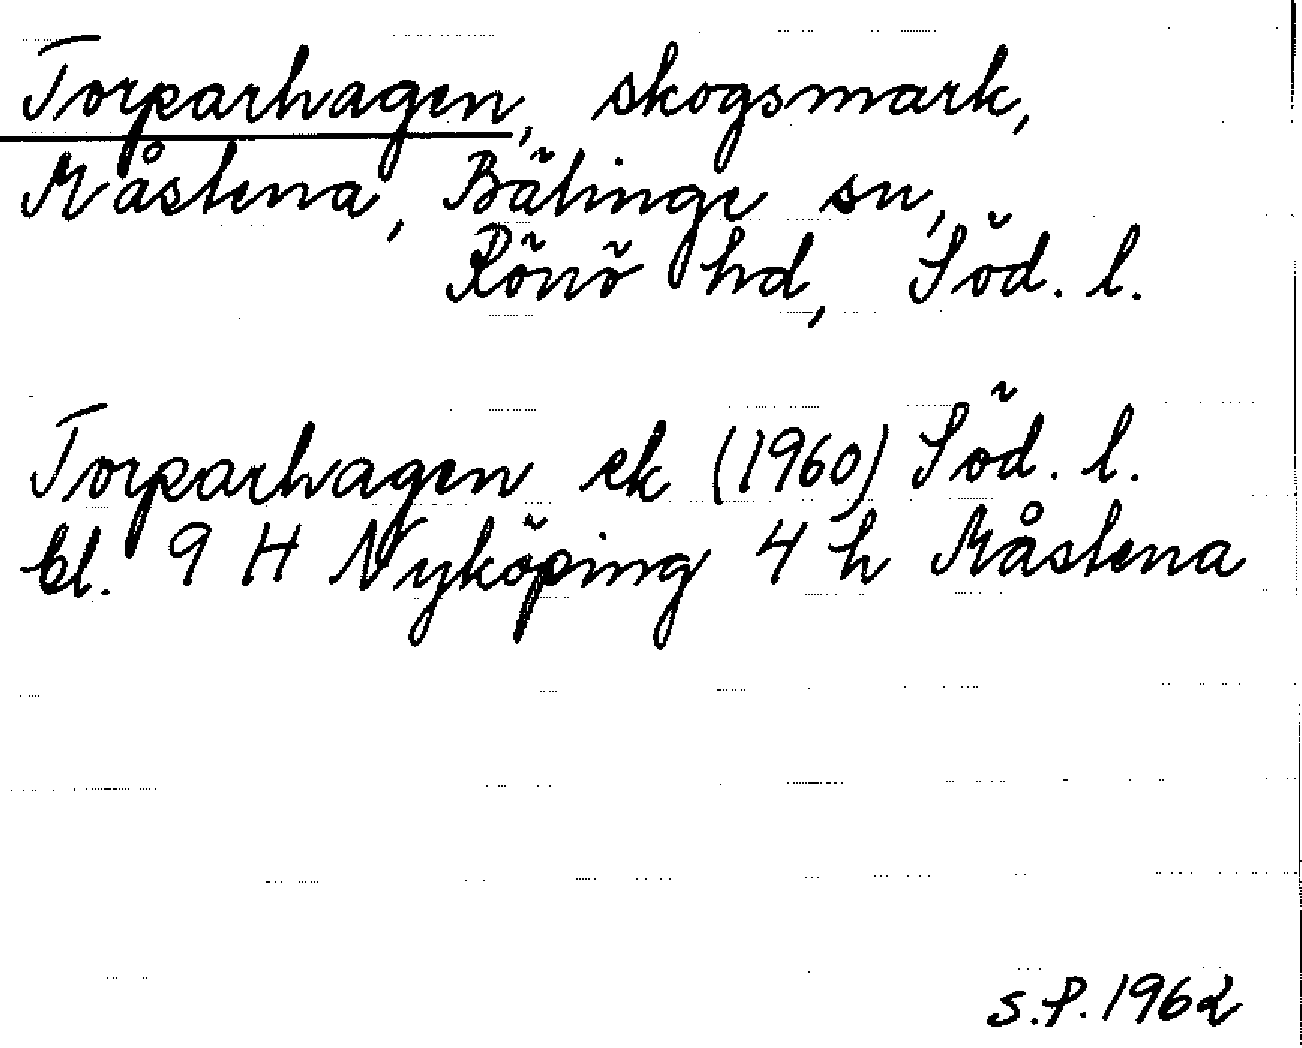 Torparhagen, skogsmark,
Måstena, Bälinge sn,
Rönö hd, Söd. l.
Torparhagen ek (1960) Söd. l.
bl. 9 H Nyköping 4 h Måstena
S.P. 1962